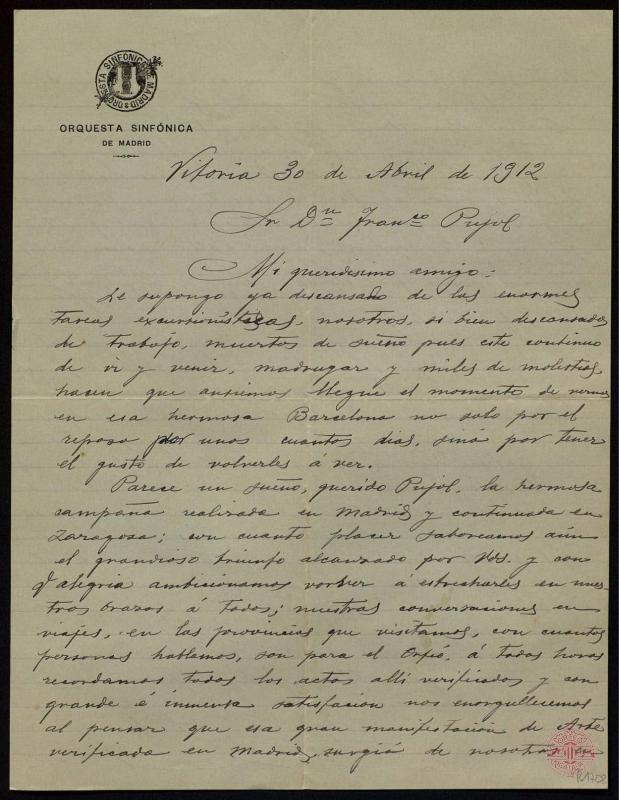 ORQUESTA SINFÓNICA DE MADRID
ORQUESTA SINFÓNICA
DE MADRID
Vitoria 30 de Abril de 1912
Sr Dn Franco Pujol
Mi queridisimo amigo:
Le supongo ya descansado de las enormes
tareas excursionísticas, nosotros, si bien descansados
de trabajo, muertos de sueño pues este continuo
de ir y venir, madrugar y miles de molestias,
hacen que ansiemos llegue el momento de vernos
en esa hermosa Barcelona no solo por el
reposo por unos cuantos dias, sinó por tener
el gusto de volverles á ver.
Parece un sueño, querido Pujol, la hermosa
campaña realizada en Madrid y continuada en
Zaragoza; con cuanto placer saboreamos aún
el grandioso triunfo alcanzado por Vds. y con
q. alegria ambicionamos volver á estrecharles en nues-
tros brazos á todos; nuestras conversaciones en
viajes, en las provincias que visitamos, con cuantas
personas hablamos, son para el Orfeó, á todas horas
recordamos todos los actos allí verificados y con
grande é inmensa satisfacion nos enorgullecemos
al pensar que esa gran manifestación de Arte
verificada en Madrid, surgió de nosotros, en
R.1708